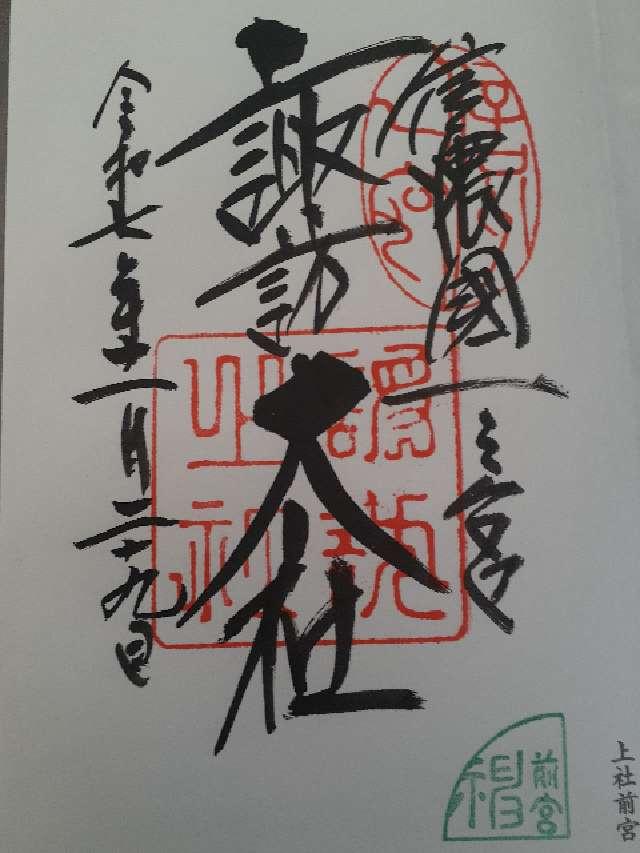 信濃國一之宮
諏訪大社
令和七年十一月二十九日
前宮
上社前宮